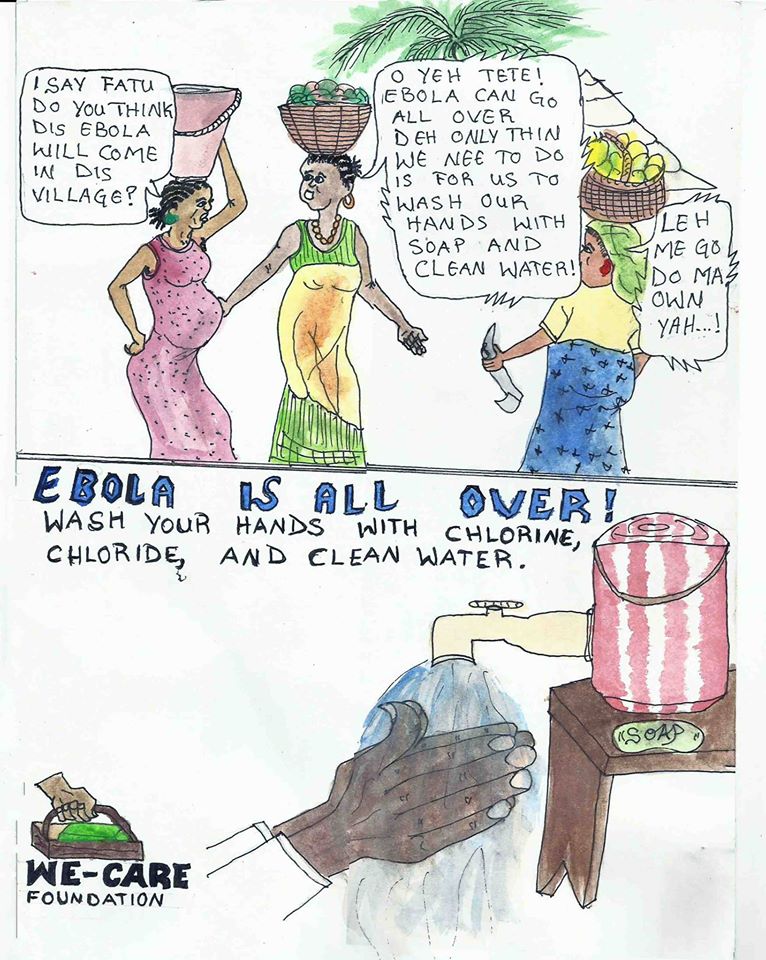 I SAY FATU
DO YOU THINK
DIS EBOLA
WILL COME
IN DIS
VILLAGE?
O YEH TETE!
EBOLA CAN GO
ALL OVER
DEH ONLY THIN
WE NEE TO DO
IS FOR US TO
WASH OUR
HANDS WITH
SOAP AND
CLEAN WATER!
LEH
ME GO
DO MA
OWN
YAH...!
EBOLA IS ALL OVER!
WASH YOUR HANDS WITH CHLORINE,
CHLORIDE, AND CLEAN WATER.
"SOAP"
WE-CARE
FOUNDATION